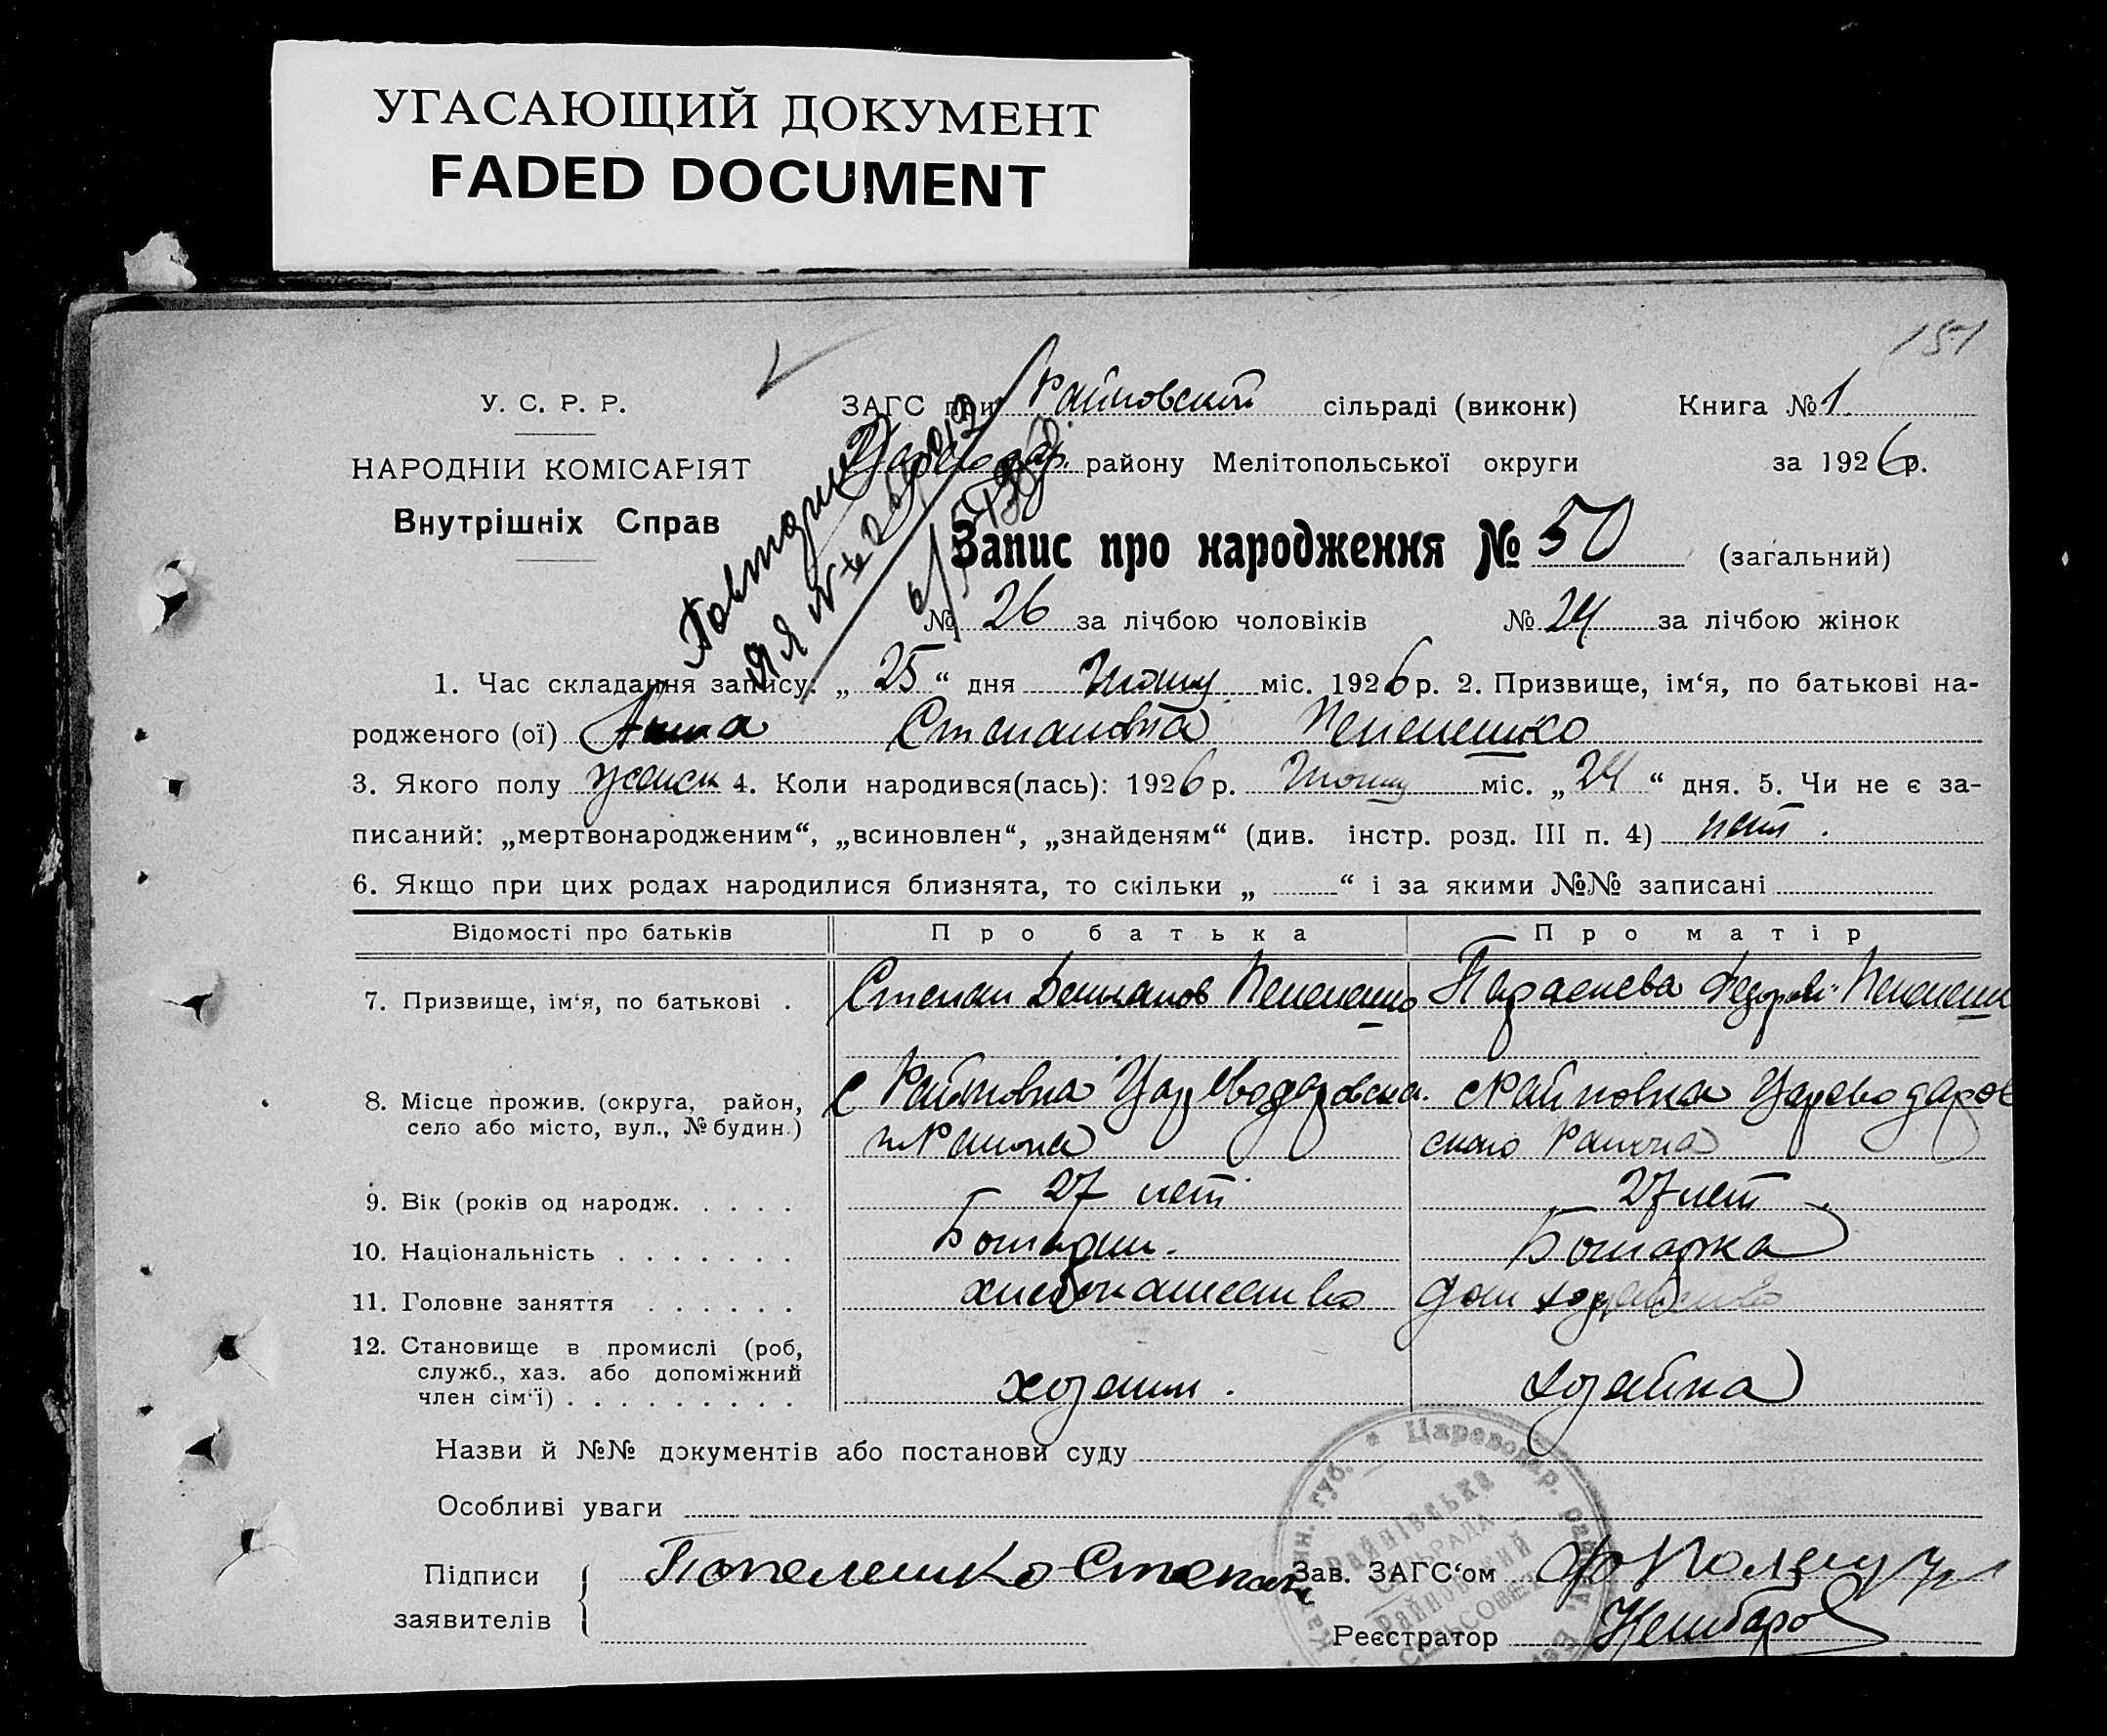 УГАСАЮЩИЙ ДОКУМЕНТ
FADED DOCUMENT
151
У. С. Р. Р.
ЗАГС при Райновский сільраді (виконк) Книга № 1
НАРОДНІЙ КОМІСАРІЯТ
району Мелітопольської округи за 1926 р.
Внутрішніх Справ
Запис про народження № 50 (загальний)
№ 26 за лічбою чоловіків № 24 за лічбою жінок
1. Час складання запису: „ 25 “ дня Июня міс. 1926 р. 2. Призвище, ім‘я, по батькові на-
родженого (ої) Анна Степановна Пепелешко
3. Якого полу женск 4. Коли народився(лась): 1926 р. Июня міс. „ 24 “ дня. 5. Чи не є за-
писаний: „мертвонародженим“, „всиновлен“, „знайденям“ (див. інстр. розд. III п. 4) нет.
6. Якщо при цих родах народилися близнята, то скільки „ “ і за якими №№ записані
Відомості про батьків Про батька Про матір
7. Призвище, ім‘я, по батькові . Степан Пепелешко Параскева Федоров Пепелешк
8. Місце прожив. (округа, район, село або місто, вул., № будин.) с Райновка Царeводаровска. с Райновка Царeводаров
го Района ского Района
9. Вік (років од народж. . . . . 27 лет 27 лет
10. Національність . . . . . . . Болгарин. Болгарка
11. Головне заняття . . . . . . хлебопашество дом хозяйство
12. Становище в промислі (роб,
служб., хаз. або допоміжний
член сім‘ї) . . . . . . . . . хозяин. хозяйка
Назви й №№ документів або постанови суду
Особливі уваги
Підписи
заявителів
Попелешко Степан
Зав. ЗАГС‘ом
Реєстратор
Цареводар. район
Райнівська
СІЛЬРАДА
Райновский
СЕЛЬСОВЕТ